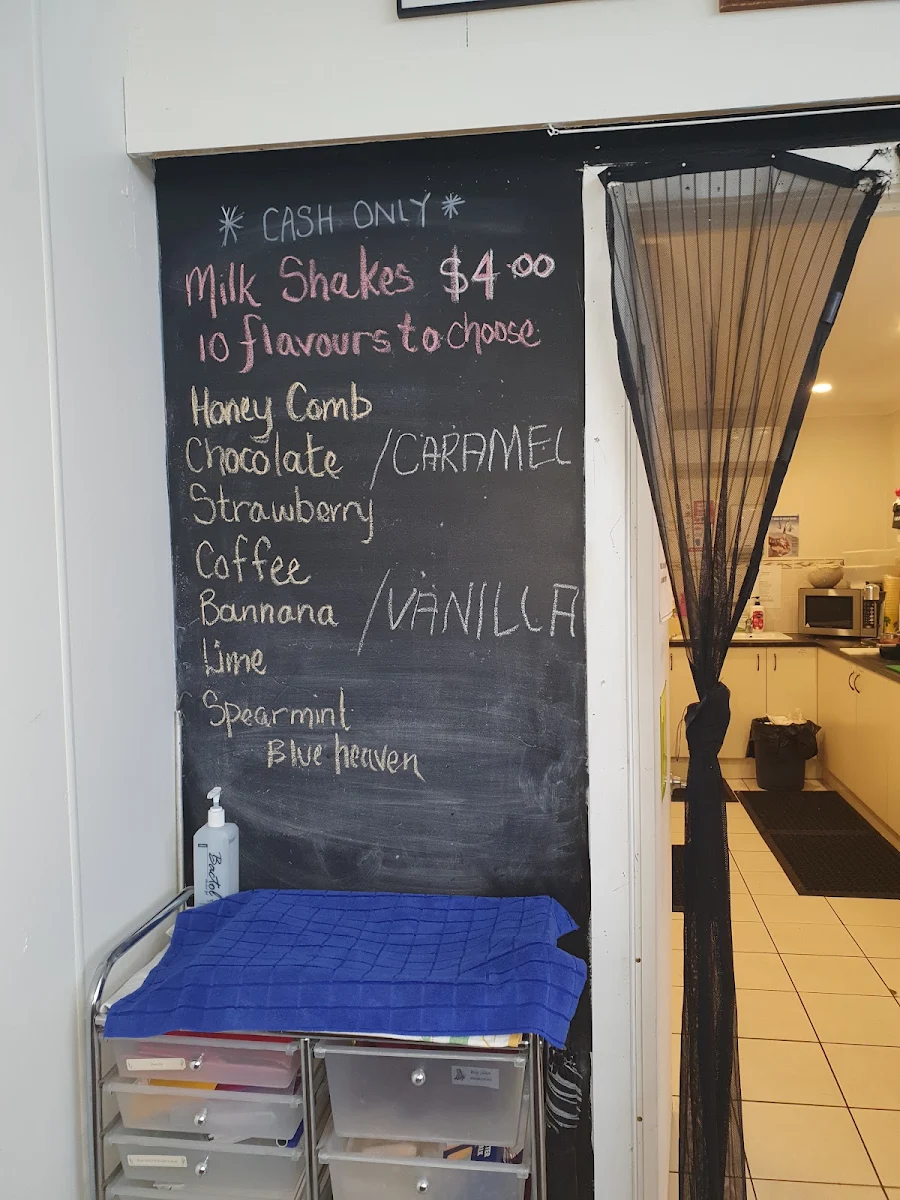 * CASH ONLY *
Milk Shakes $4.00
10 flavours to choose
Honey Comb
Chocolate /CARAMEL
Strawberry
Coffee
Bannana /VANILLA
Lime
Spearmint
Blue heaven
Bactol